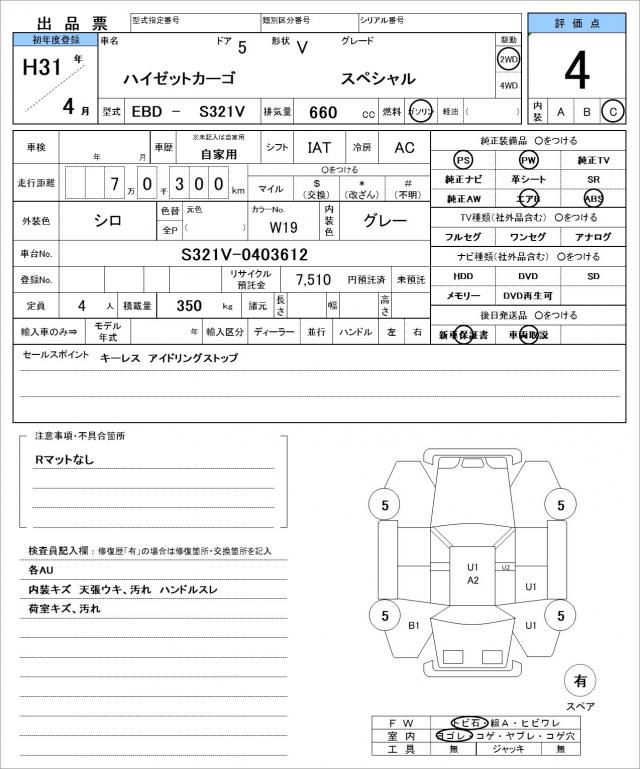 出品票 型式指定番号 類別区分番号 シリアル番号
評価点
初年度登録 車名 ドア 5 形状 V グレード 駆動
H31 年 ハイゼットカーゴ スペシャル 2WD 4
4WD
4 月 型式 EBD － S321V 排気量 660 cc 燃料 ガソリン 軽油 ( ) 内装 A B C
車検 年 月 車歴 ※未記入は自家用 自家用 シフト IAT 冷房 AC 純正装備品 〇をつける
PS PW 純正TV
走行距離 7 万 0 千 3 0 0 km 〇をつける
マイル $ (交換) * (改ざん) # (不明)
純正ナビ 革シート SR
純正AW エアB ABS
外装色 シロ 色替 元色 全P ( ) カラーNo. W19 内装色 グレー
TV種類(社外品含む) 〇をつける
フルセグ ワンセグ アナログ
車台No. S321V-0403612 ナビ種類(社外品含む) 〇をつける
登録No. リサイクル預託金 7,510 円預託済 未預託 HDD DVD SD
メモリー DVD再生可
定員 4 人 積載量 350 kg 諸元 長さ 幅 高さ
後日発送品 〇をつける
輸入車のみ⇒ モデル年式 年 輸入区分 ディーラー 並行 ハンドル 左 右 新車保証書 車両取説
セールスポイント キーレス アイドリングストップ
注意事項・不具合箇所
Rマットなし
検査員記入欄：修復歴「有」の場合は修復箇所・交換箇所を記入
各AU
内装キズ 天張ウキ、汚れ ハンドルスレ
荷室キズ、汚れ
5 5
U1 U2
A2
U1
5 B1 U1 5
有
スペア
FW トビ石・線A・ヒビワレ
室内 ヨゴレ・コゲ・ヤブレ・コゲ穴
工具 無 ジャッキ 無